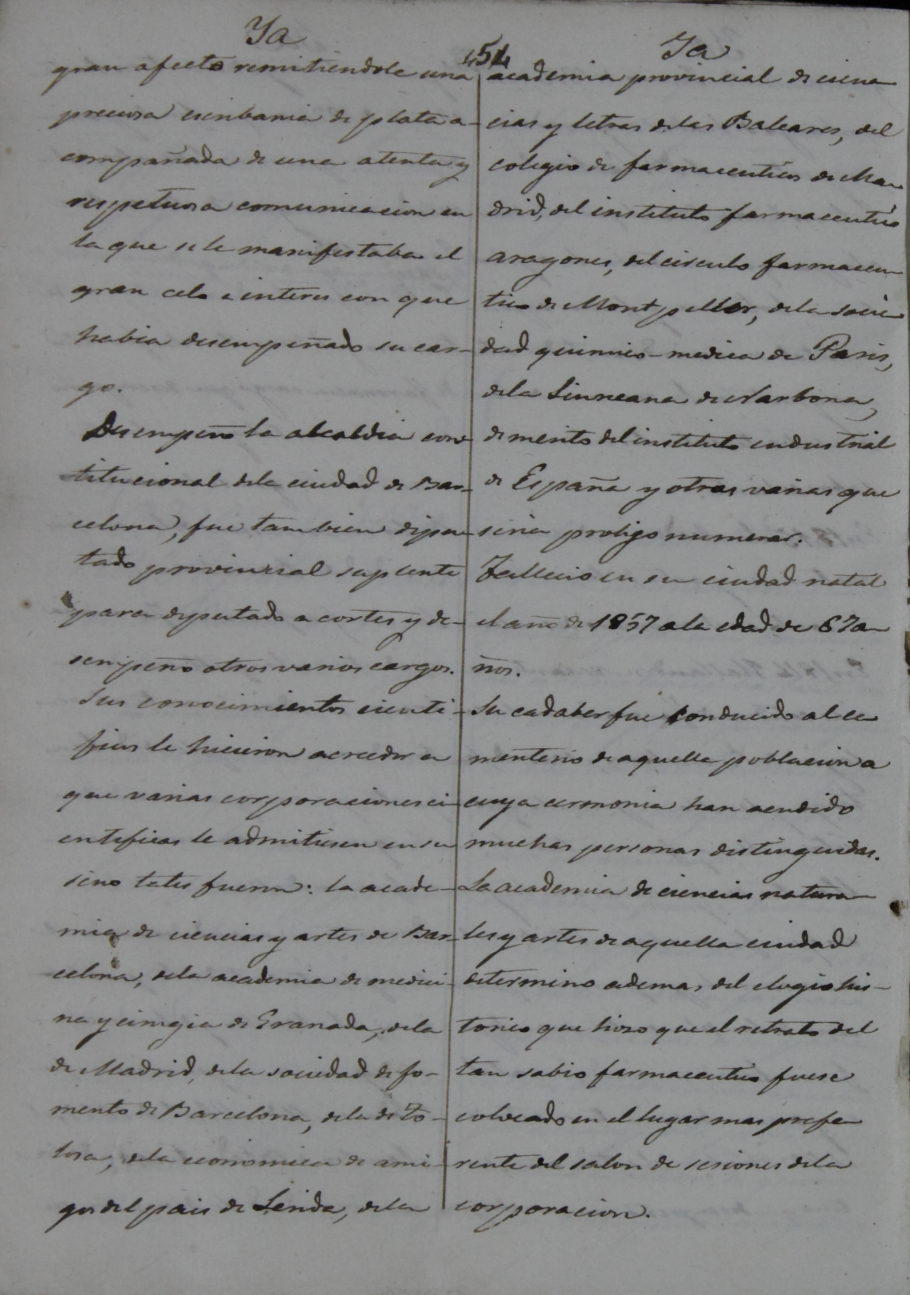 Ya
454
Ya
gran afecto remitiendole una
preciosa escribania de plata a-
compañada de una atenta y
respetuosa comunicacion en
la que se le manifestaba el
gran celo e interes con que
habia desempeñado su car-
go.
Desempeño la alcaldia cons
titucional dela ciudad de Bar-
celona, fue tambien dipu
tado provincial suplente
para diputado a cortes y de-
sempeño otros varios cargos.
Sus conocimientos cienti-
ficos le hicieron acreedor a
que varias corporaciones ci
entificas le admitiesen en su
seno tales fueron: la acade-
mia de ciencias y artes de Bar-
celona, dela academia de medici-
na y cirugia de Granada, dela
de Madrid, dela sociedad de fo-
mento de Barcelona, dela de To-
losa, dela economica de ami-
gos del pais de Lerida, dela
academia provincial de cienc
cias y letras delas Baleares, del
colegio de farmaceuticos de Ma
drid, del instituto farmaceutico
aragones, del circulo farmaceu
tico de Montpeller, dela socie
dad quimico-medica de Paris,
dela Linneana de Narbona,
de merito del instituto industrial
de España y otras varias que
seria prolijo numerar.
Fallecio en su ciudad natal
el año de 1857 a la edad de 67 a-
ños.
Su cadaber fué conducido al ce
menterio de aquella poblacion a
cuya cermonia han acudido
muchas personas distinguidas.
La academia de ciencias natura
les y artes de aquella ciudad
determino ademas del elogio his-
torico que hizo que el retrato del
tan sabio farmaceutico fuese
colocado en el lugar mas prefe
rente del salon de sesiones dela
corporacion.